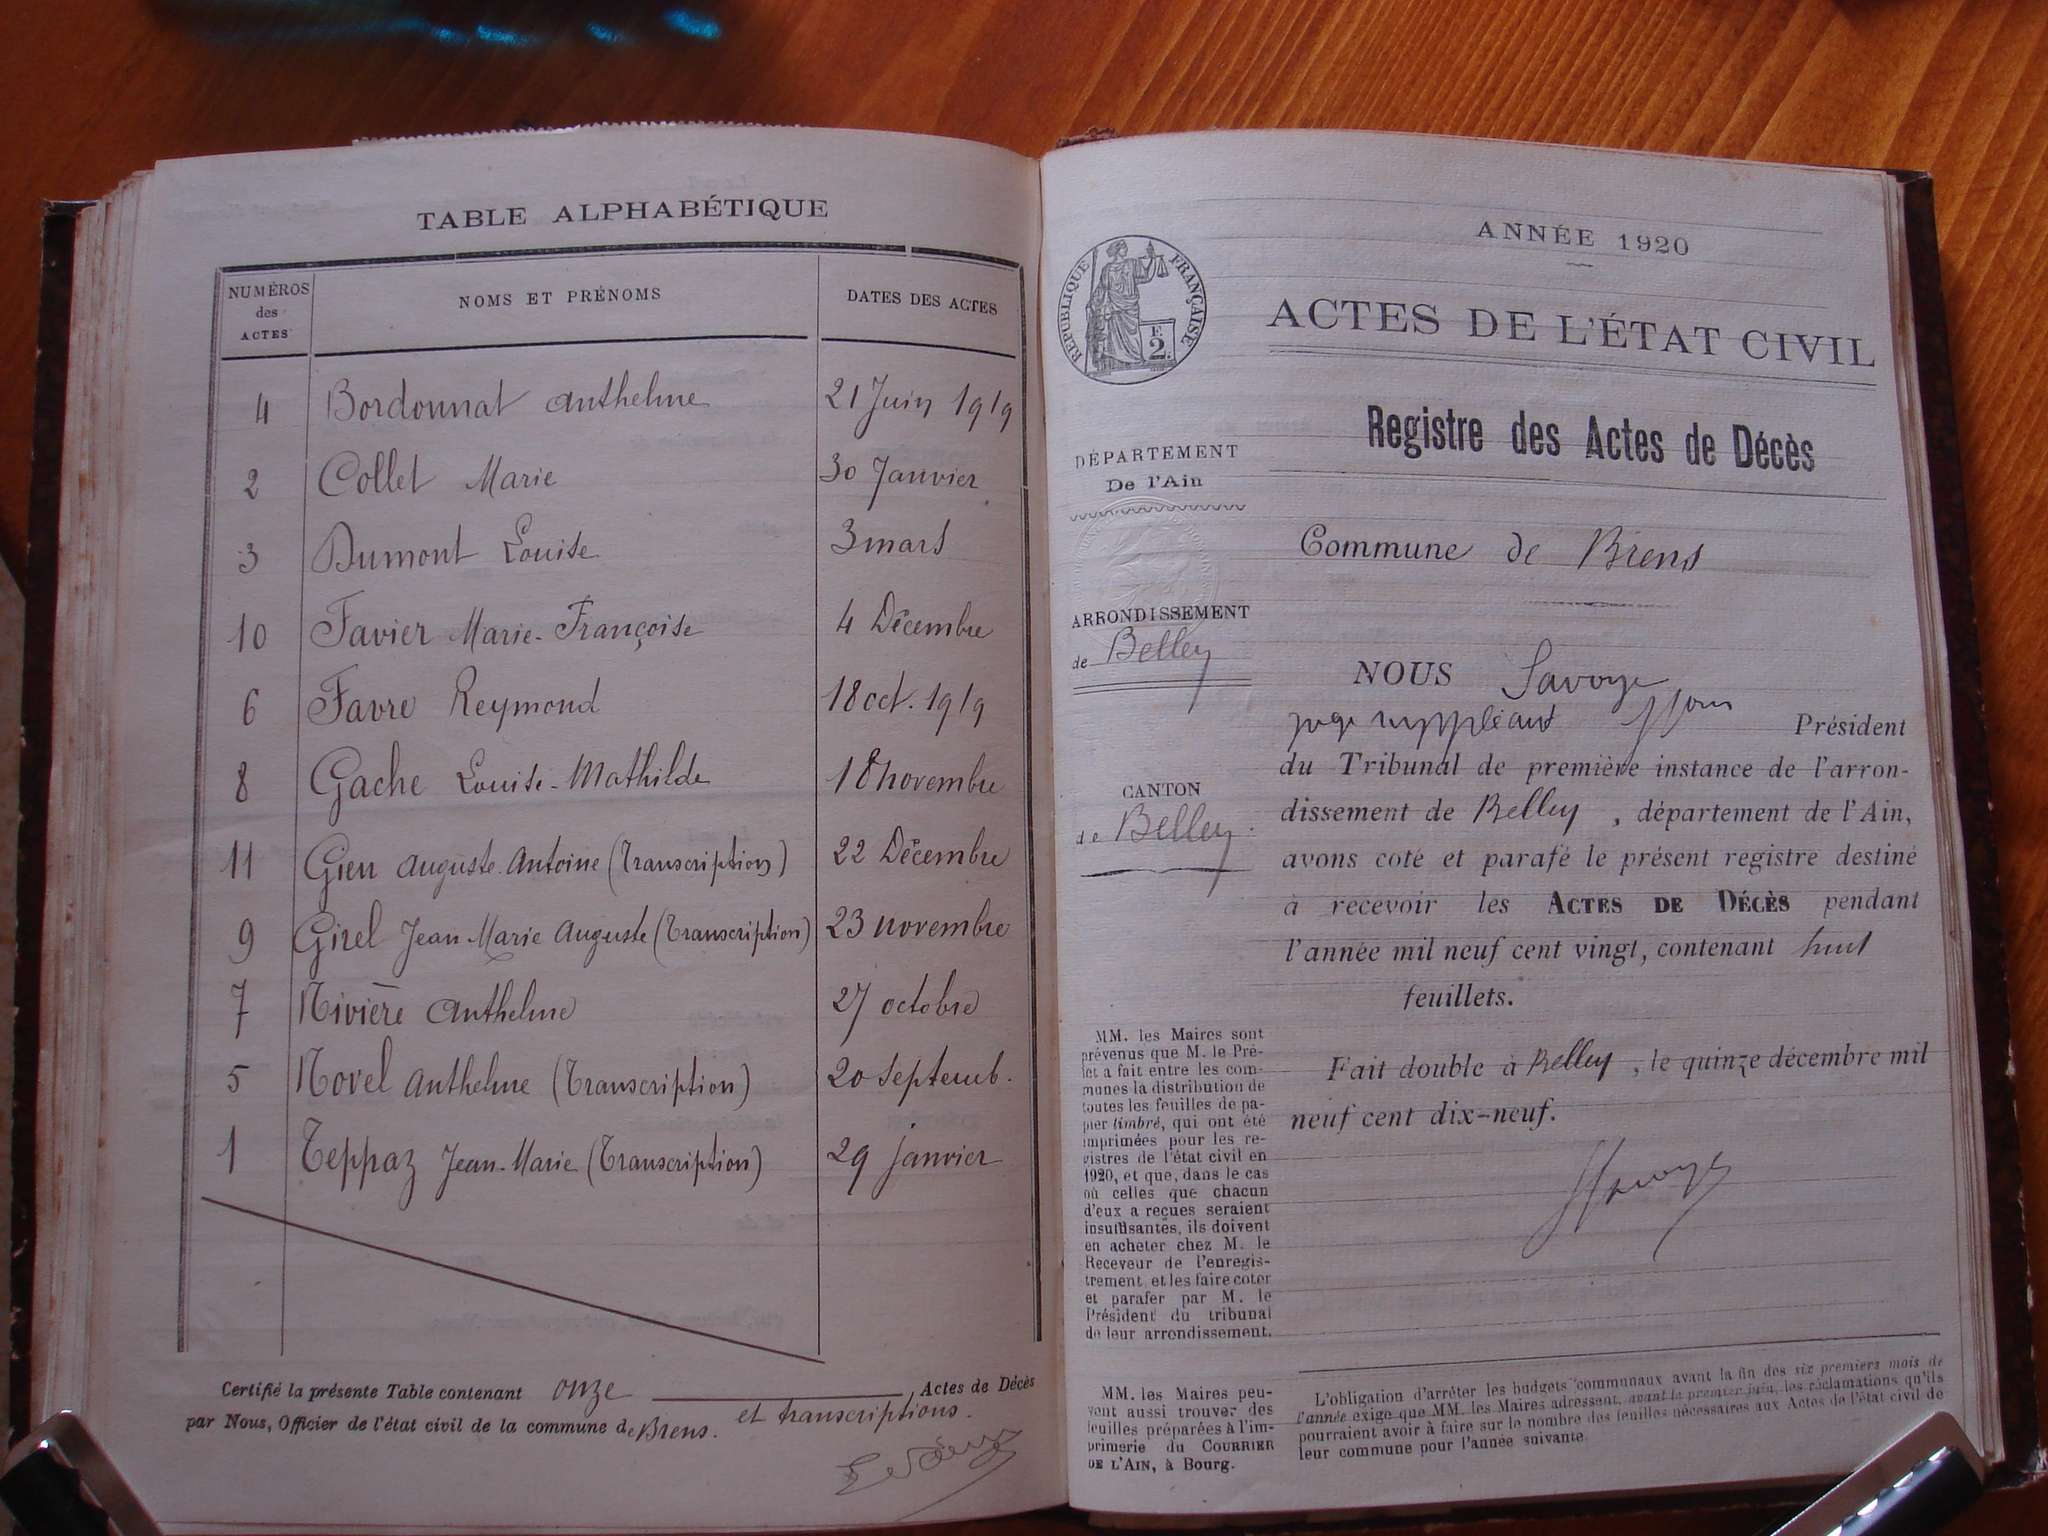 TABLE ALPHABÉTIQUE
NUMÉROS des ACTES NOMS ET PRÉNOMS DATES DES ACTES
4 Bordonnat Anthelme 21 Juin 1919
2 Collet Marie 30 Janvier
3 Dumont Louise 3 mars
10 Favier Marie-Françoise 4 Décembre
6 Favre Reymond 18 oct. 1919
8 Gache Louise-Mathilde 18 novembre
11 Gien Auguste-Antoine (Transcription) 22 Décembre
9 Girel Jean-Marie Auguste (Transcription) 23 novembre
7 Rivière Anthelme 27 octobre
5 Rovel Anthelme (Transcription) 20 septemb.
1 Teppaz Jean-Marie (Transcription) 29 janvier
Certifié la présente Table contenant onze Actes de Décès
et transcriptions.
par Nous, Officier de l'état civil de la commune de Brens.
ANNÉE 1920
RÉPUBLIQUE FRANÇAISE
2 F.
ACTES DE L'ÉTAT CIVIL
Registre des Actes de Décès
DÉPARTEMENT
De l'Ain
Commune de Brens
ARRONDISSEMENT
de Belley
CANTON
de Belley.
NOUS Savoye
juge suppléant Président
du Tribunal de première instance de l'arron-
dissement de Belley, département de l'Ain,
avons coté et parafé le présent registre destiné
à recevoir les ACTES DE DÉCÈS pendant
l'année mil neuf cent vingt, contenant huit
feuillets.
Fait double à Belley, le quinze décembre mil
neuf cent dix-neuf.
Savoye
MM. les Maires sont
prévenus que M. le Pré-
fet a fait entre les com-
munes la distribution de
toutes les feuilles de pa-
pier timbré, qui ont été
imprimées pour les re-
gistres de l'état civil en
1920, et que, dans le cas
où celles que chacun
d'eux a reçues seraient
insuffisantes, ils doivent
en acheter chez M. le
Receveur de l'enregis-
trement, et les faire coter
et parafer par M. le
Président du tribunal
de leur arrondissement.
MM. les Maires peu-
vent aussi trouver des
feuilles préparées à l'im-
primerie du COURRIER
DE L'AIN, à Bourg.
L'obligation d'arrêter les budgets communaux avant la fin des six premiers mois de
l'année exige que MM. les Maires adressent, avant le premier juin, les réclamations qu'ils
pourraient avoir à faire sur le nombre des feuilles nécessaires aux Actes de l'état civil de
leur commune pour l'année suivante.